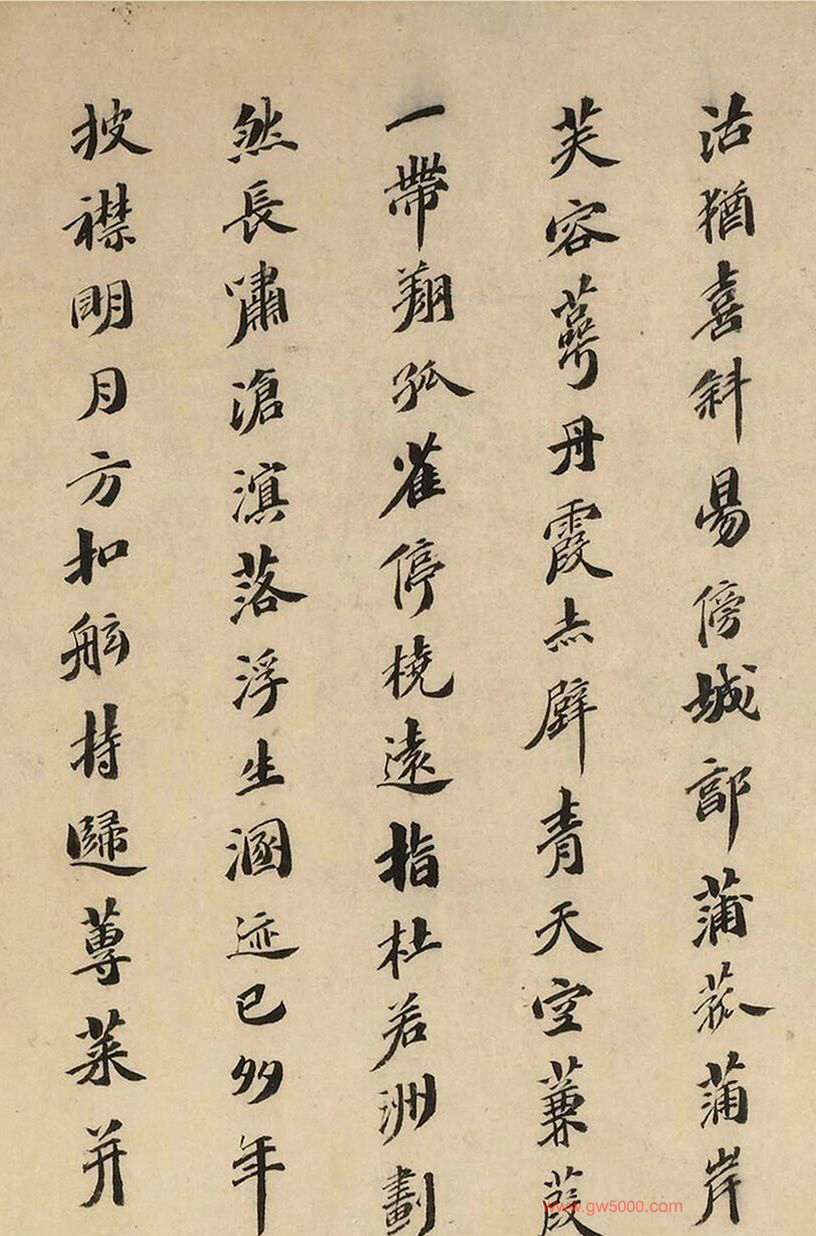 沽猶喜斜昜傍城郭蒲菰蒲岸
芙容萼丹霞赤壁青天空蒹葭
一帶翔孤雀停橈遠指杜若洲劃
然長嘯滄溟落浮生溷迹已多年
披襟明月方扣舷持歸蓴菜并
www.gw5000.com